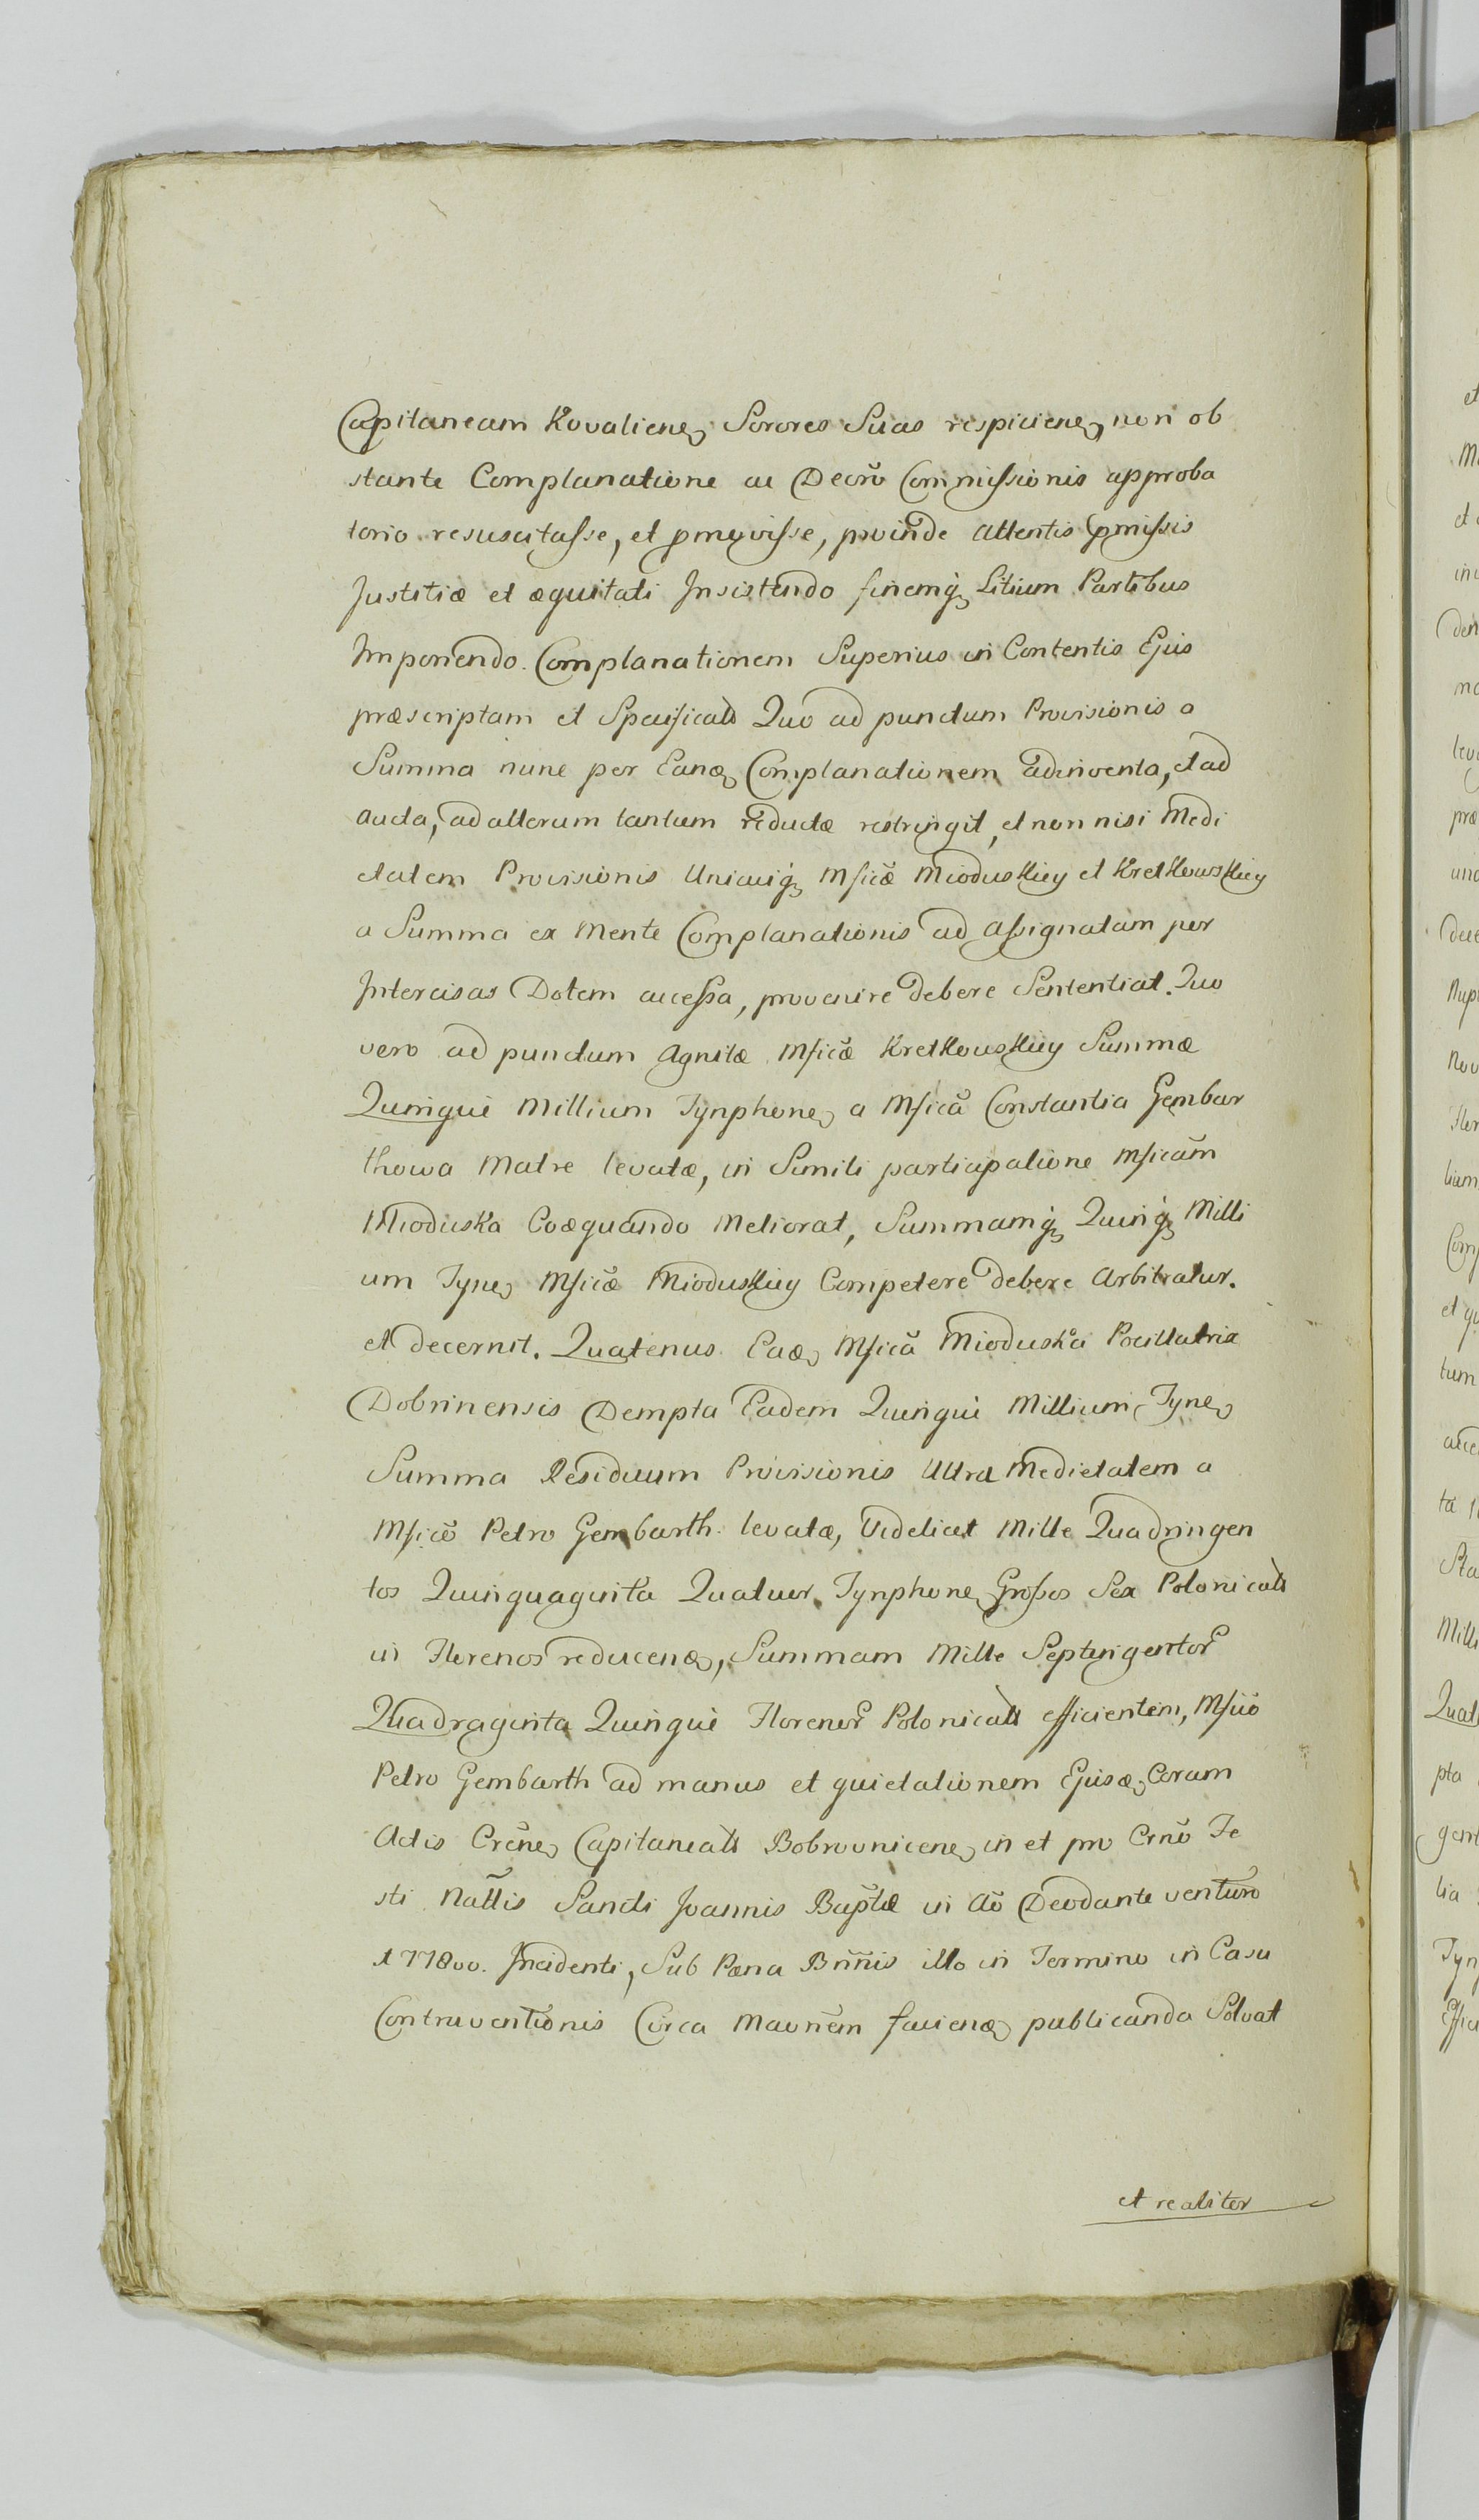 Capitaneam Kovaliene Sorores Suas respiciene, non ob
stante Complanatione ac Decrō Commissionis approba
torio resuscitasse, et pmovisse, proinde attentis pmissis
Justitiæ et æquitati Insistendo finemq Litium Partibus
Imponendo. Complanationem Superius in Contentis Ejus
præscriptam et Specificat Quo ad punctum Provisionis a
Summa nunc per Eand Complanationem adinventa, et ad
aucta, ad alterum tantum reductæ restringit, et non nisi Medi
etatem Provisionis Unicuiq Mficæ Mioduskiey et Kretkowskiey
a Summa ex Mente Complanationis ad assignatam per
Intercisas Dotem accessa, provenire debere Sententiat. Quo
vero ad punctum Agnitæ Mficæ Kretkouskiey Summæ
Quinque Millium Tynphone a Mficā Constantia Gembar
thowa Matre levatæ, in Simili participatione Mficam̄
Mioduska Coæquando Meliorat, Summamq Quinq Milli
um Tyne Mficæ Mioduskiey Competere debere Arbitratur.
et decernit. Quatenus Ead Mficā Mioduska Pocillatrix
Dobrinensis Dempta Eadem Quinque Millium Tyne
Summa Residuum Provisionis Ultra Medietatem a
Mficō Petro Gembarth levatæ, Videlicet Mille Quadringen
tos Quinquaginta Quatuor Tynphone Grossos Sex Polonical
in Florenos reducend, Summam Mille Septingentor
Quadraginta Quinque Florenor Polonical efficientem, Mfico
Petro Gembarth ad manus et quietationem Ejusd, Coram
Actis Crēne Capitaneal Bobrovnicene in et pro Crnō Fe
sti Nātlis Sancti Joannis Bapt̄æ in Aō Deodante venturo
177800. Incidenti, Sub Pæna Bnn̄is illo in Termino in Casu
Contraventionis Circa Maunēm faciend publicanda Solvat
et realiter